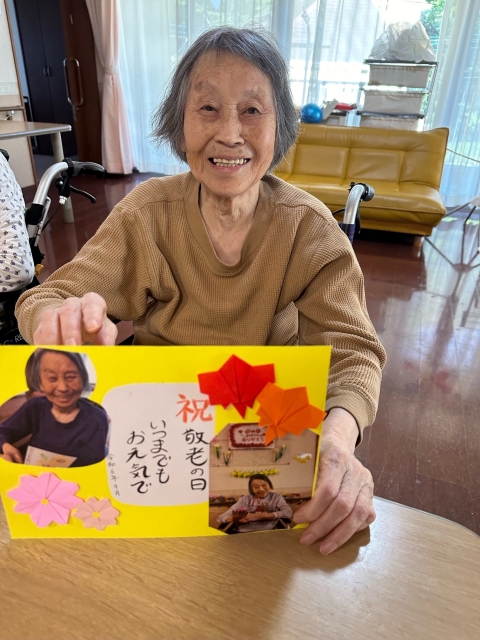 祝
敬老の日
いつまでも
お元気で
令和6年9月